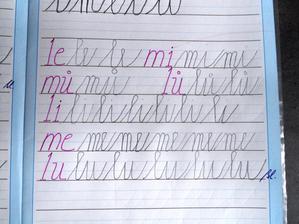 le le le mi mi mi
mů mů lů lů lů
li li li li li li li
me me me me me me
lu lu lu lu lu lu lu